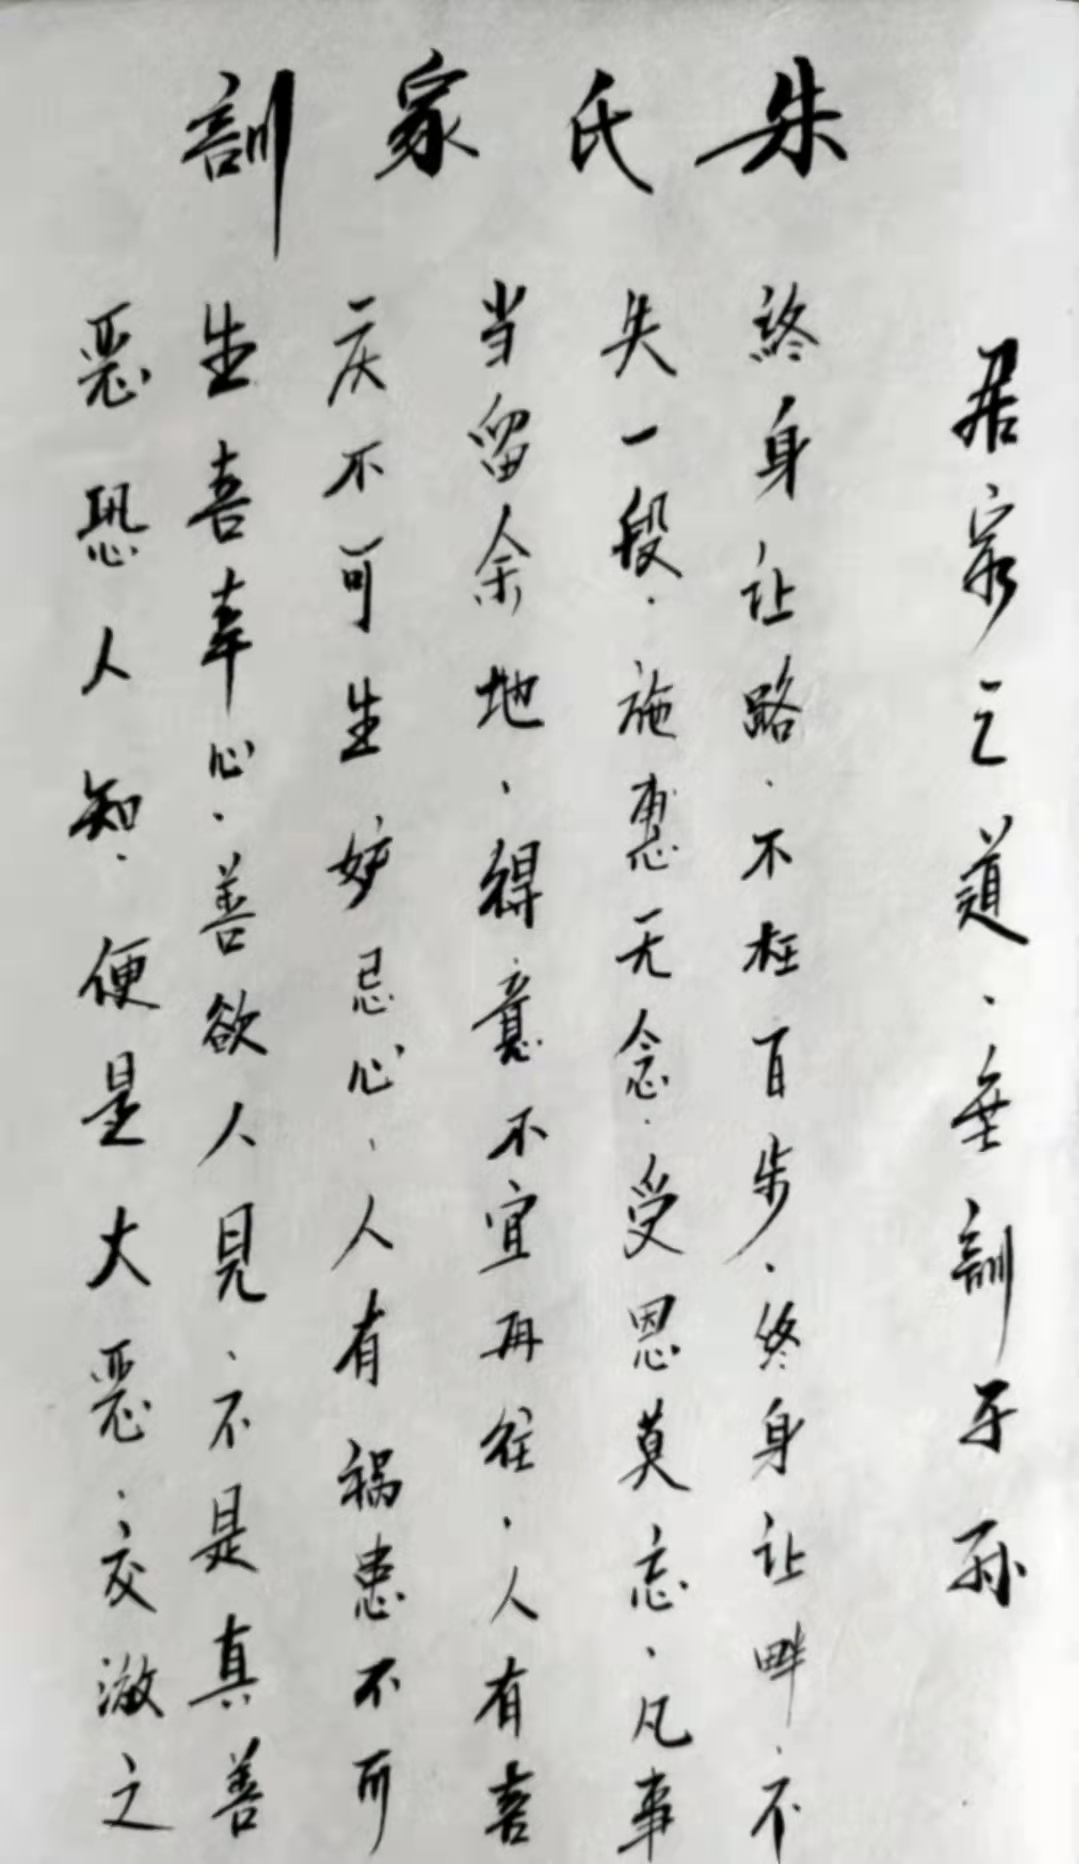 朱氏家訓
居家之道、垂訓子孫
終身让路、不枉百步、终身让畔、不
失一段、施惠无念、受恩莫忘、凡事
当留余地、得意不宜再往、人有喜
庆不可生妒忌心、人有禍患不可
生喜幸心、善欲人見、不是真善
恶恐人知、便是大恶、交
之